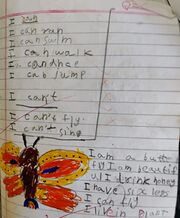 I can
I can ran
I can swim
I can walk
I can dance
I can jump
I can't
I can't fly.
I can't sing
I am a butt
fly I am beautif
ul I drink honey
I have six legs
I can fly
I live in plant